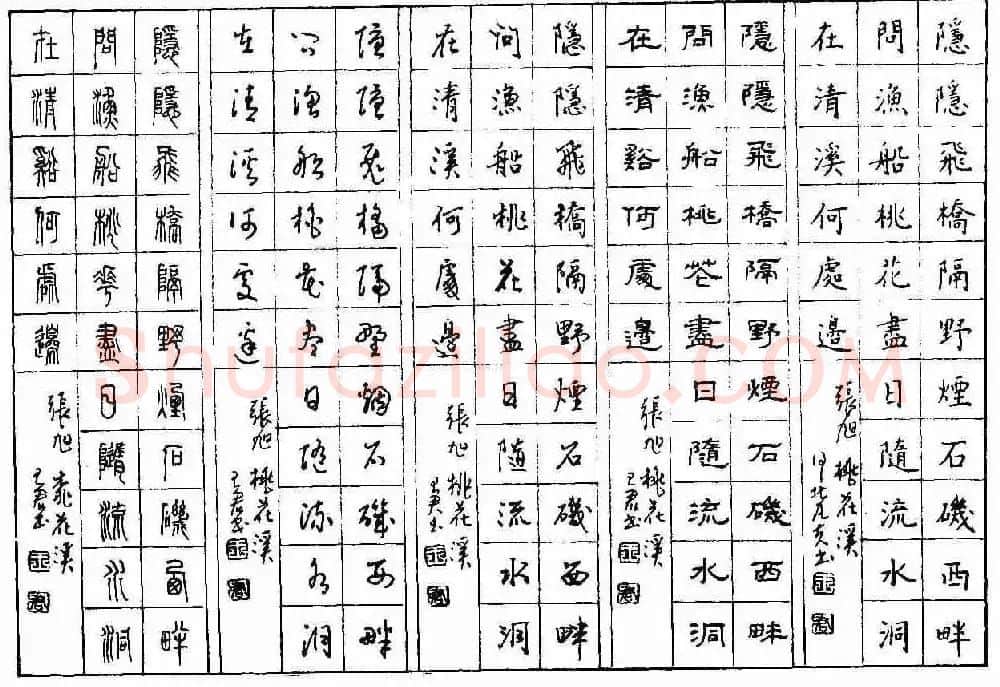 隱隱飛橋隔野煙石磯西畔
問漁船桃花盡日隨流水洞
在清溪何處邊
張旭桃花溪
隱隱飛橋隔野煙石磯西畔
問漁船桃花盡日隨流水洞
在清谿何處邊
張旭桃花溪
隱隱飛橋隔野煙石磯西畔
問漁船桃花盡日隨流水洞
在清溪何處邊
張旭桃花溪
隱隱飛橋隔野煙石磯西畔
問漁船桃花盡日隨流水洞
在清溪何處邊
張旭桃花溪
隱隱飛橋隔野煙石磯西畔
問漁船桃華盡日隨流水洞
在清谿何處邊
張旭桃花溪
Shufaziliao.COM